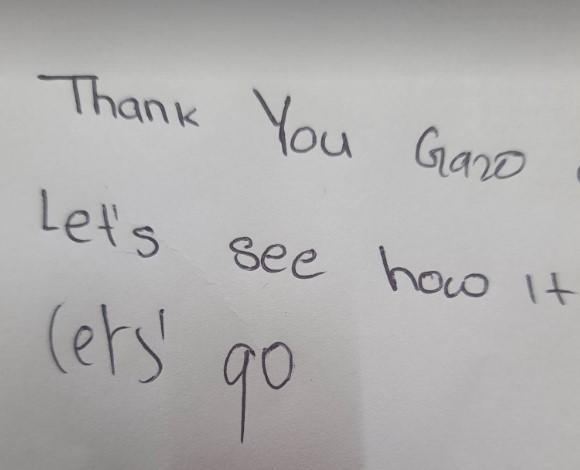 Thank You Gazo
Let's see how it
lets' go